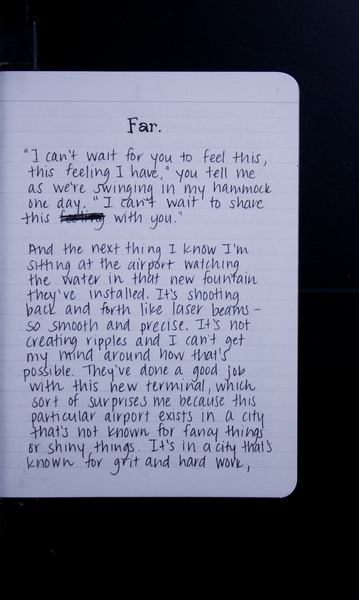 Far.
"I can't wait for you to feel this,
this feeling I have," you tell me
as we're swinging in my hammock
one day. "I can't wait to share
this feeling with you."
And the next thing I know I'm
sitting at the airport watching
the water in that new fountain
they've installed. It's shooting
back and forth like laser beams—
so smooth and precise. It's not
creating ripples and I can't get
my mind around how that's
possible. They've done a good job
with this new terminal, which
sort of surprises me because this
particular airport exists in a city
that's not known for fancy things
or shiny things. It's in a city that's
known for grit and hard work,